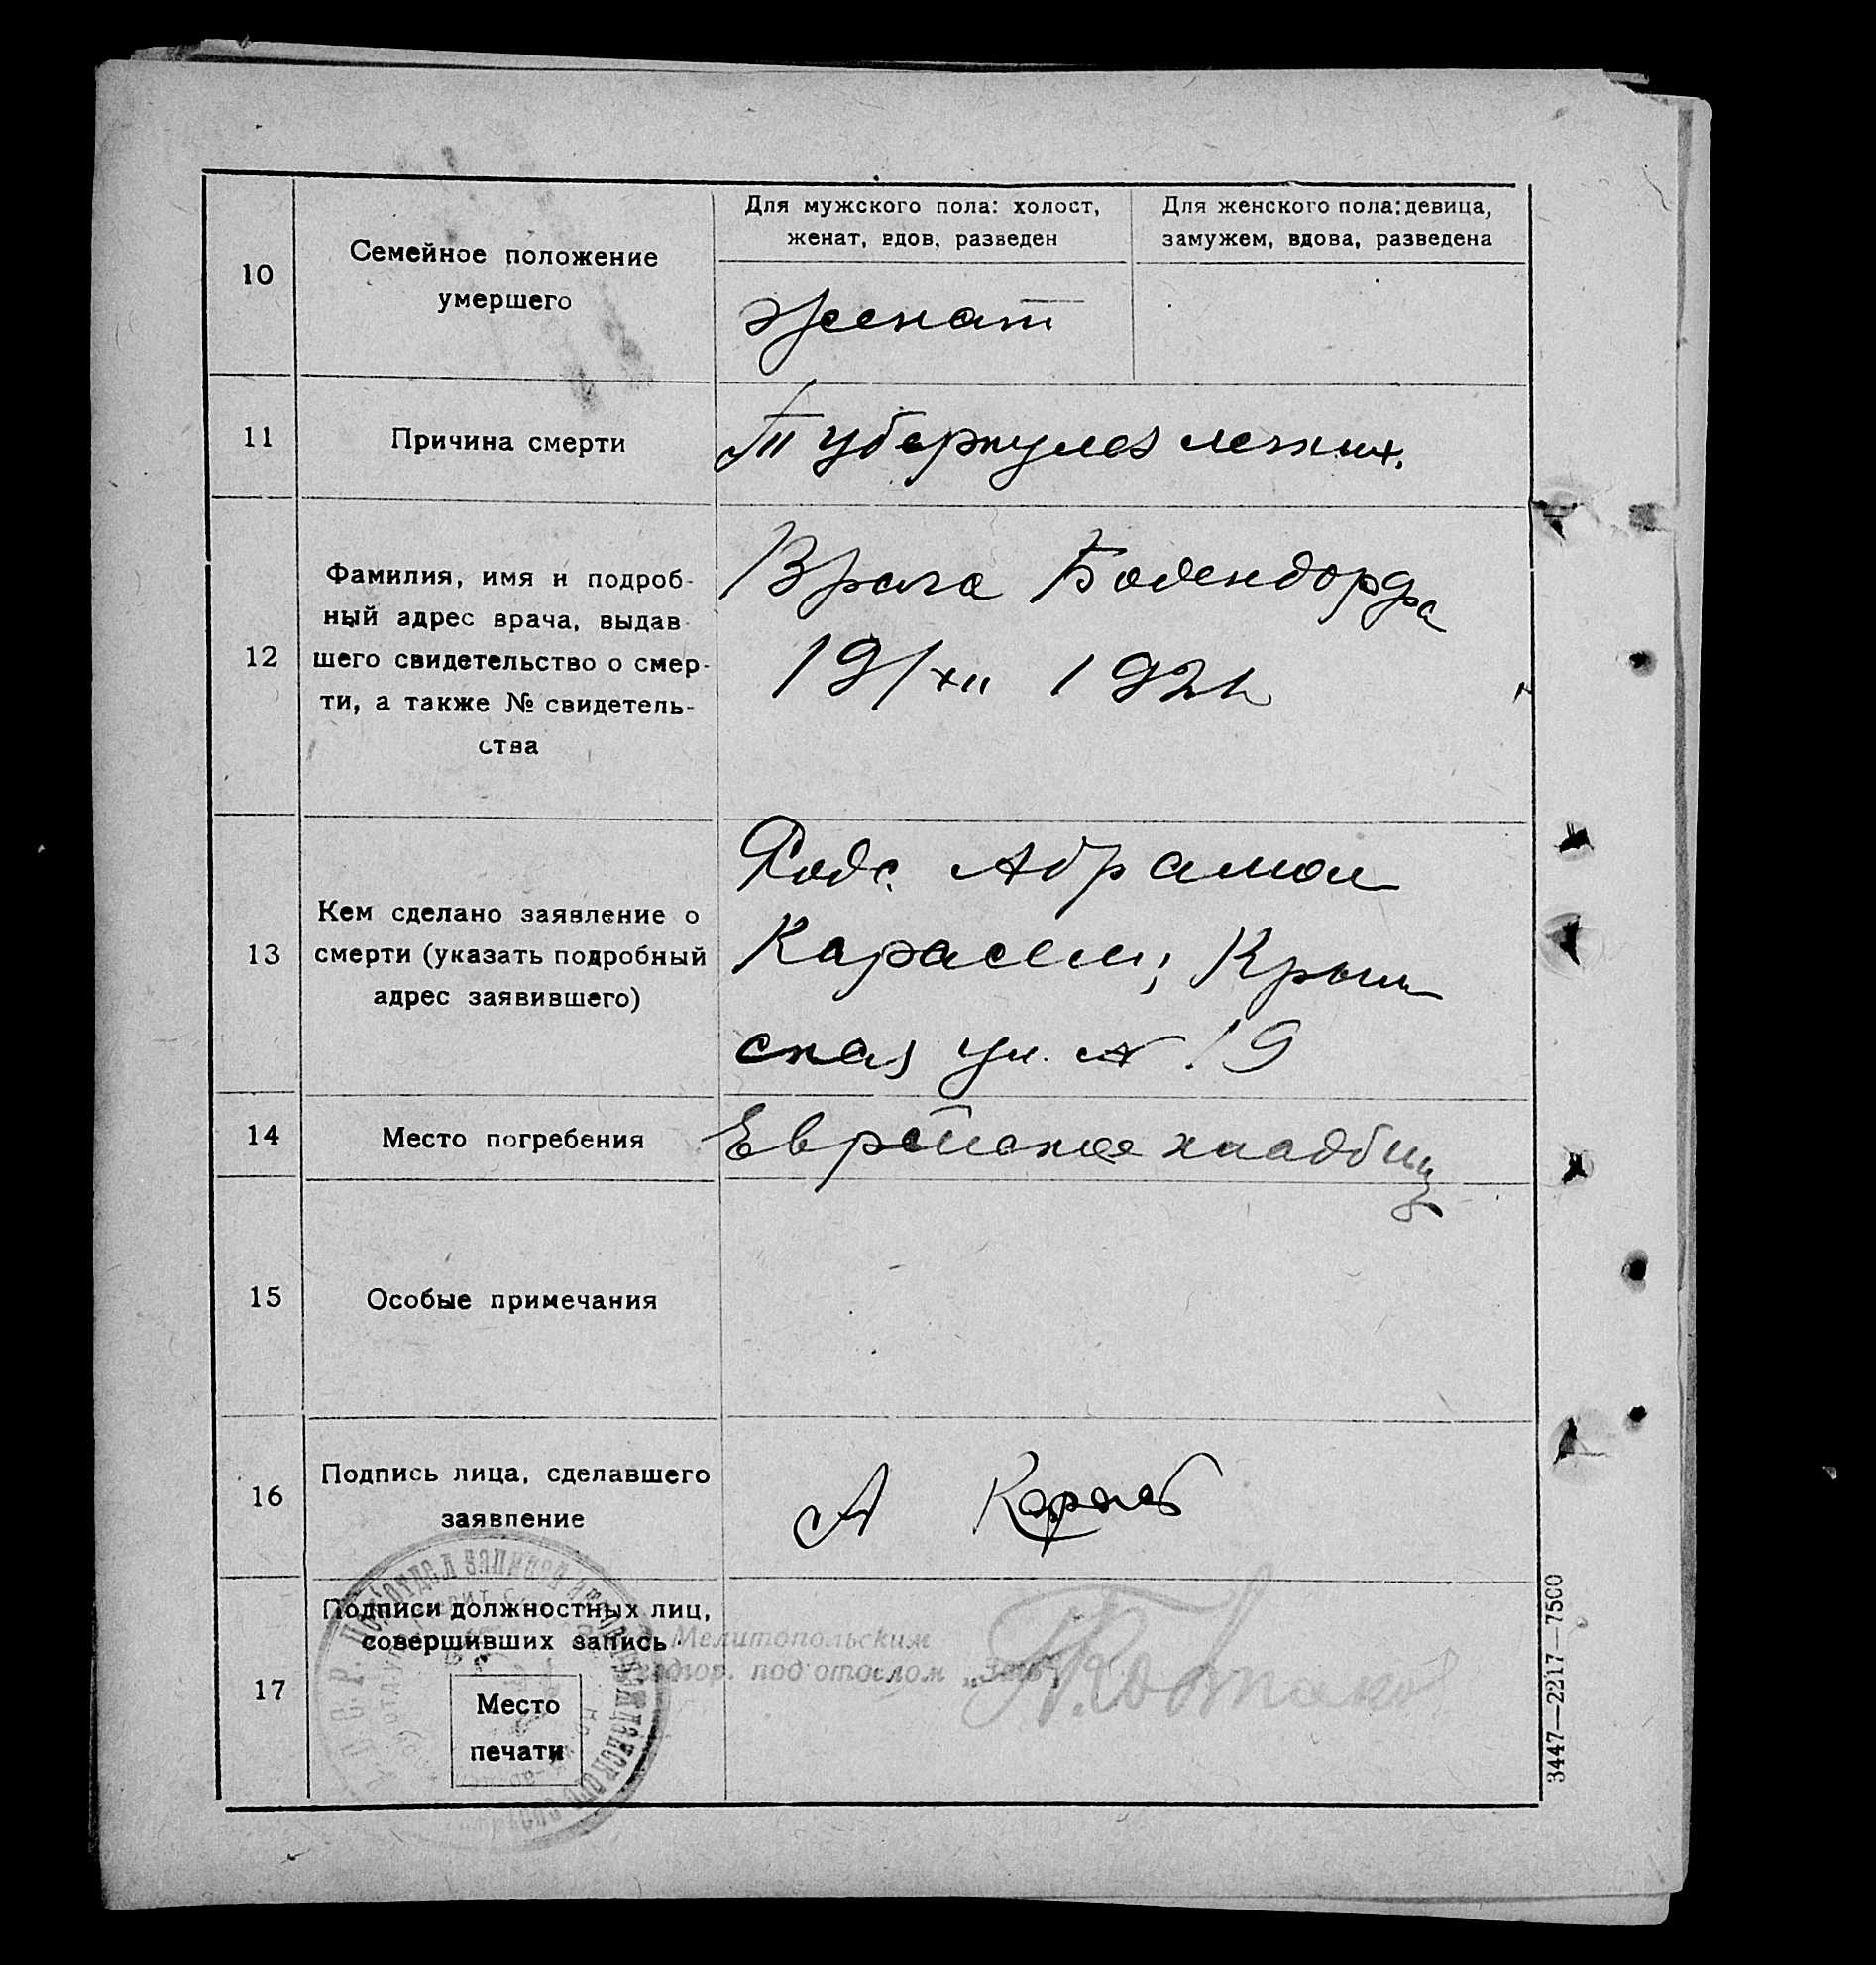 10
Семейное положение
умершего
Для мужского пола: холост,
женат, вдов, разведен
Для женского пола: девица,
замужем, вдова, разведена
женат
11
Причина смерти
Туберкулез легких.
12
Фамилия, имя и подроб-
ный адрес врача, выдав-
шего свидетельство о смер-
ти, а также № свидетель-
ства
Врача Бодендорфа
19/XII 192
13
Кем сделано заявление о
смерти (указать подробный
адрес заявившего)
Абрамом
Карасем; Крым
ская ул. № 19
14
Место погребения
Еврейское кладбищ
15
Особые примечания
16
Подпись лица, сделавшего
заявление
А Карась
17
Подписи должностных лиц,
совершивших запись
Место
печати
Мелитопольским
под'отделом
Под'отдел записей гражданского
3447—2217—7500